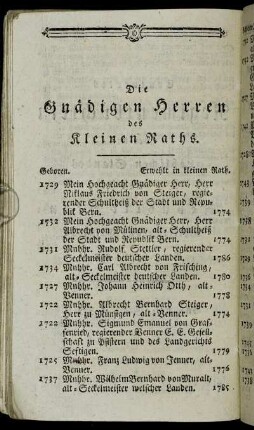 Die
Gnädigen Herren
des
Kleinen Raths.
Geboren. Erwehlt in kleinen Rath.
1729 Mein Hochgeacht Gnädiger Herr, Herr
Niklaus Friedrich von Steiger, regie-
render Schultheiß der Stadt und Repu-
blick Bern. 1774
1732 Mein Hochgeacht Gnädiger Herr, Herr
Albrecht von Müllinen, alt-Schultheiß
der Stadt und Republik Bern. 1774
1731 Mnhhr. Rudolf Stettler, regierender
Seckelmeister deutscher Landen. 1786
1734 Mnhhr. Carl Albrecht von Frisching,
alt-Seckelmeister deutscher Landen. 1780
1727 Mnhhr. Johann Heinrich Otth, alt-
Venner. 1778
1722 Mnhhr. Albrecht Bernhard Steiger,
Herr zu Münsigen, alt-Venner. 1774
1722 Mnhhr. Sigmund Emanuel von Graf-
fenried, regierender Venner E. E. Gesell-
schaft zu Pfistern und des Landgerichts
Seftigen. 1779
1725 Mnhhr. Franz Ludwig von Jenner, alt-
Venner. 1776
1737 Mnhhr. Wilhelm Bernhard von Muralt,
alt-Seckelmeister welscher Landen. 1785